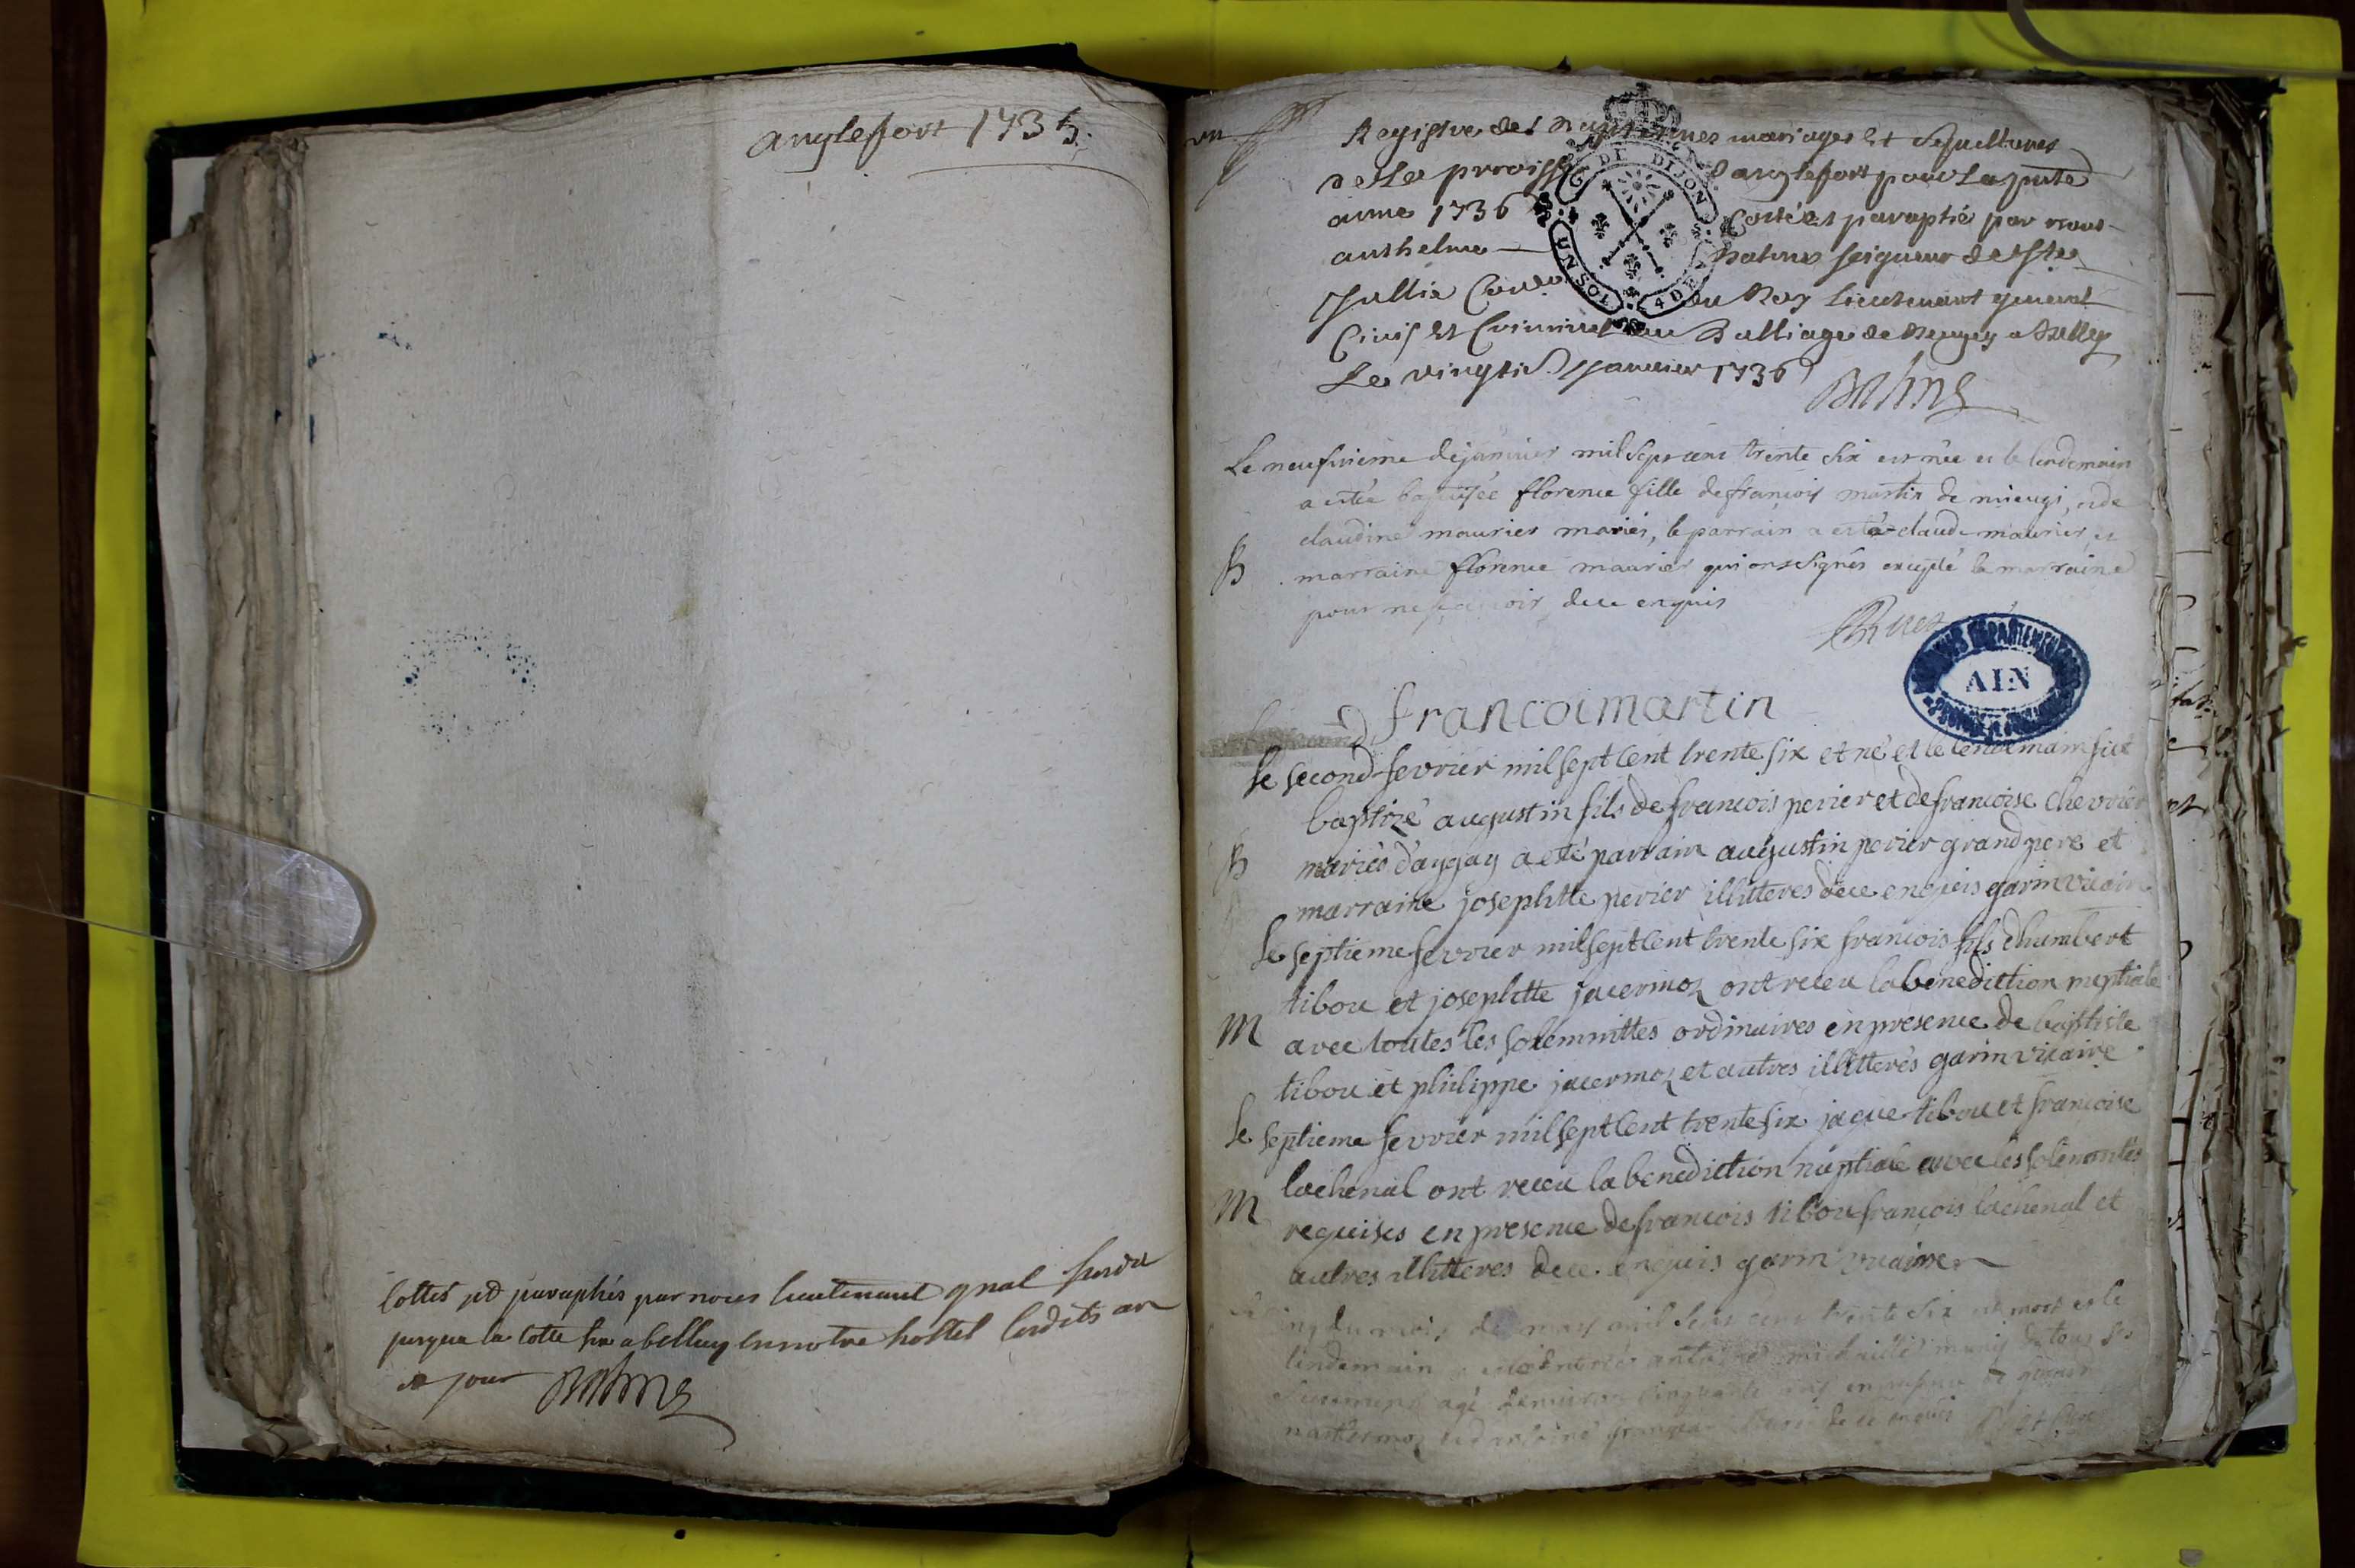 anglefort 1735.
Cottés et paraphés par nous lieutenant gnal
jusqua la cotte six a belley en notre hostel lesdits an
et jour Balme
un
Registre des Baptesmes mariages et Sepultures
de la proisse d'anglefort pour la pnte
anne 1736 Cotté et paraphé par nous
anthelme Balme seigneur de Ste
Jullie Conser du Roy Lieutenant general
Civil et Criminel au Balliage de Beugey a Belley
Le vingt Janvier 1736 Balme
G. DE DIJON
UN SOL 4 DE
Le neufvieme de janvier mil sept cent trente six est née et le lendemain
a estée baptisée florence fille de francois martin de mieugi, et de
claudine maurier mariés, le parrain a esté claude maurier, et
B
marraine florence maurier qui ont signés excepté la marraine
pour ne sçavoir de ce enquis
ARCHIVES DEPARTEMENTALES
AIN
francoimartin
le second fevrier mil sept cent trente six et né et le lendemain fut
baptizé augustin fils de francois perier et de francoise chevrier
B
mariés d'aygay a esté parrain augustin perier grand pere et
marraine josephtte perier illitteres de ce enquis garin vicaire
le septieme fevrier mil sept cent trente six francois fils d'humbert
tibou et josephtte jacermoz ont receu la benediction nuptiale
M
avec toutes les solemnittes ordinaires en presence de baptiste
tibou et philippe jacermoz et autres illitterés garin vicaire
le septieme fevrier mil sept cent trente six jaque tibou et francoise
lachenal ont receu la benediction nuptiale avec les solemnités
M
requises en presence de francois tibou francois lachenal et
autres illitteres de ce enquis garin vicaire
du mois de may mil sept cent trente six est mort et le
lendemain muni de tous ses
agé cinquante ans en presence
de ce enquis